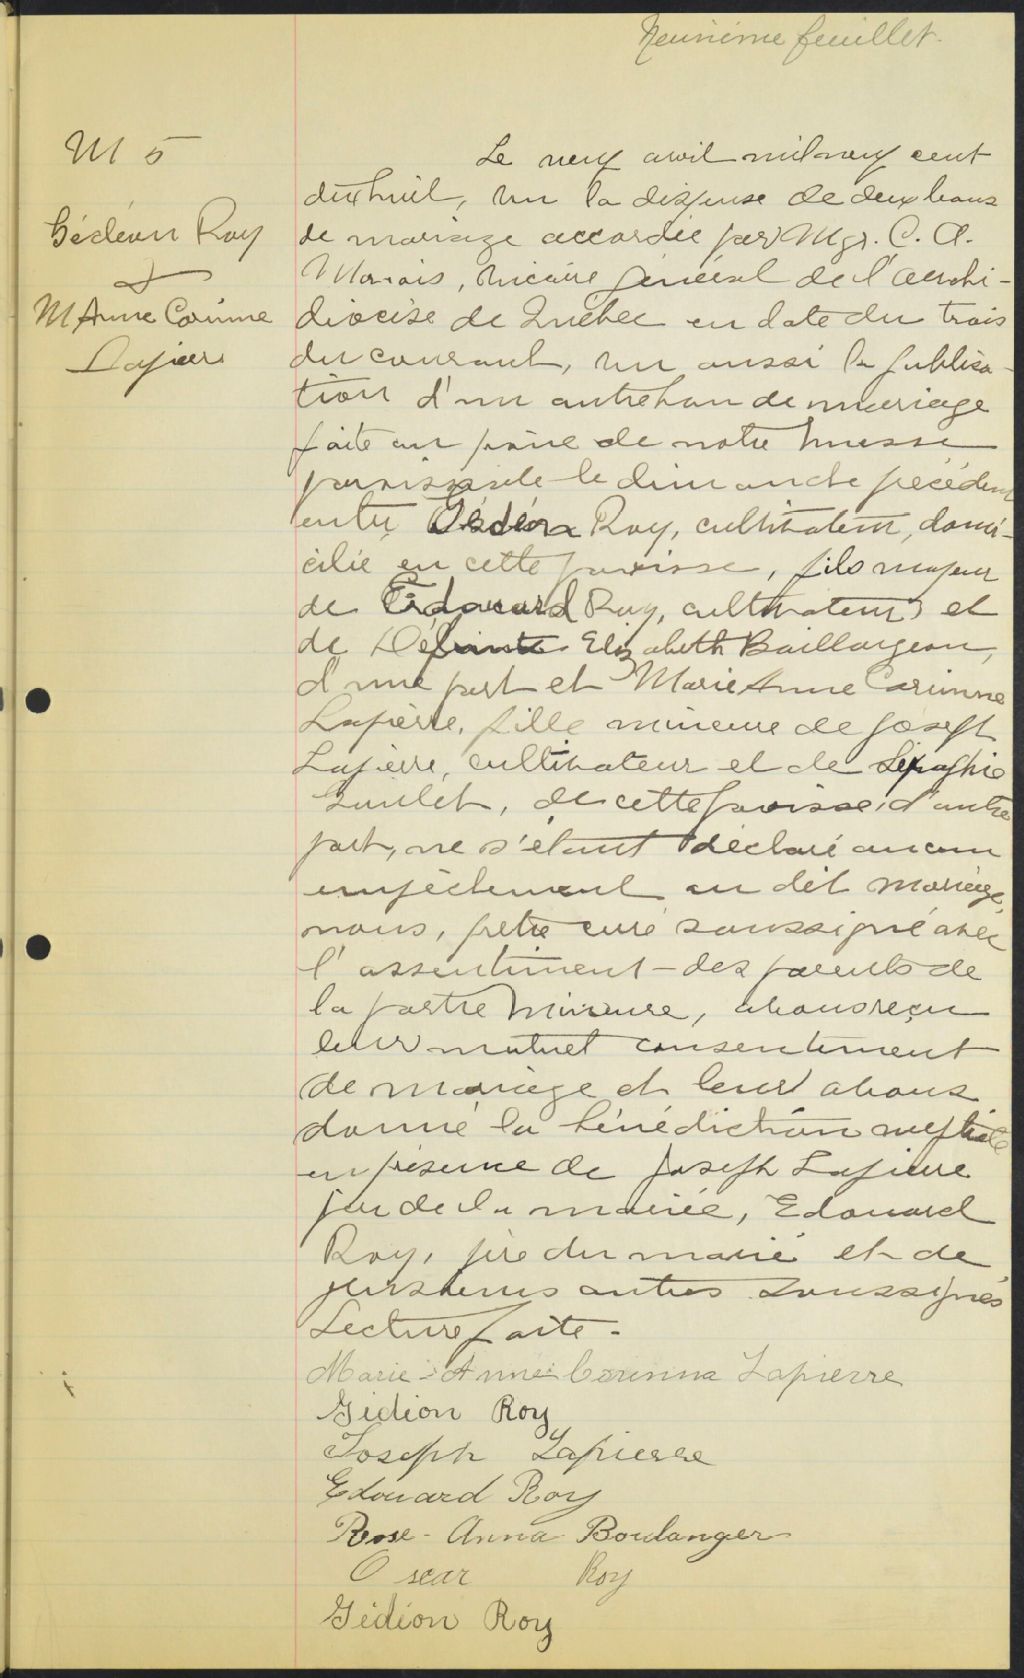 Neuvième feuillet.
M 5
Gédéon Roy
&
M Anne Corinne
Lapierre
Le neuf avril mil neuf cent
dix huit, vu la dispense de deux bans
de mariage accordée par Mgr. C. A.
Marois, vicaire général de l'archi-
diocèse de Québec en date du trois
du courant, vu aussi la publica-
tion d'un autre ban de mariage
faite au prône de notre messe
paroissiale le dimanche précédent
entre Gédéon Roy, cultivateur, domi-
cilié en cette paroisse, fils majeur
de Edouard Roy, cultivateur et
de Défunte Elizabeth Baillargeon,
d'une part et Marie Anne Corinne
Lapierre, fille mineure de Joseph
Lapierre, cultivateur et de
Goulet, de cette paroisse, d'autre
part, ne s'étant déclaré aucun
empêchement au dit mariage,
nous, prêtre curé soussigné avec
l'assentiment des parents de
la partie mineure, avons reçu
leur mutuel consentement
de mariage et leur avons
donné la bénédiction nuptiale
en présence de Joseph Lapierre
père de la mariée, Edouard
Roy, père du marié et de
plusieurs autres soussignés
Lecture faite.
Marie-Anne Corinna Lapierre
Gidion Roy
Joseph Lapierre
Edouard Roy
Rose-Anna Boulanger
Oscar Roy
Gidion Roy